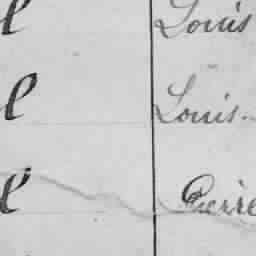 l Louis
l Louis.
l Pierre